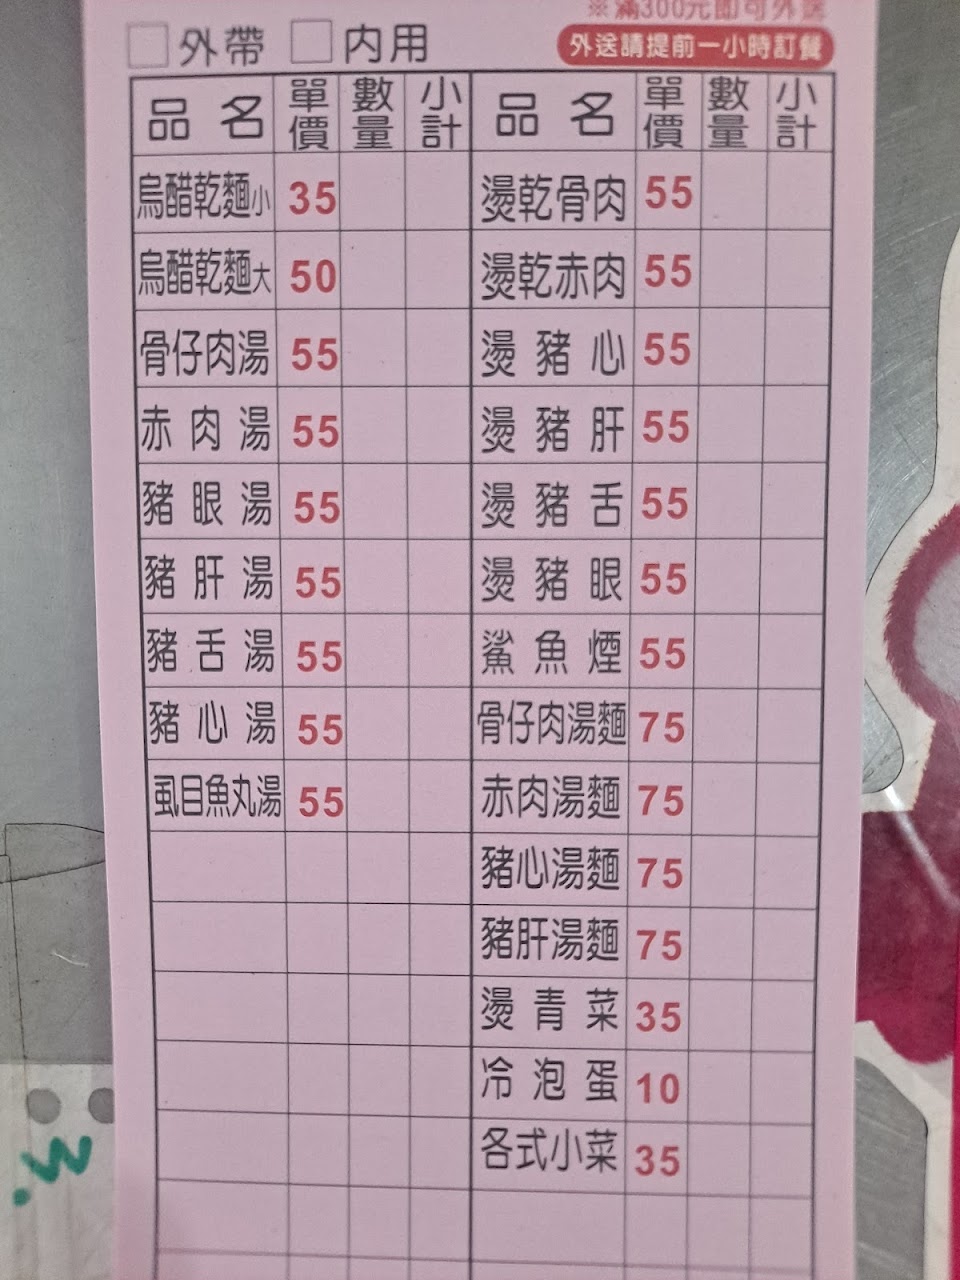 ※滿300元即可外送
□外帶 □內用
外送請提前一小時訂餐
品名 單價 數量 小計 品名 單價 數量 小計
烏醋乾麵小 35 燙乾骨肉 55
烏醋乾麵大 50 燙乾赤肉 55
骨仔肉湯 55 燙豬心 55
赤肉湯 55 燙豬肝 55
豬眼湯 55 燙豬舌 55
豬肝湯 55 燙豬眼 55
豬舌湯 55 鯊魚煙 55
豬心湯 55 骨仔肉湯麵 75
虱目魚丸湯 55 赤肉湯麵 75
豬心湯麵 75
豬肝湯麵 75
燙青菜 35
冷泡蛋 10
各式小菜 35